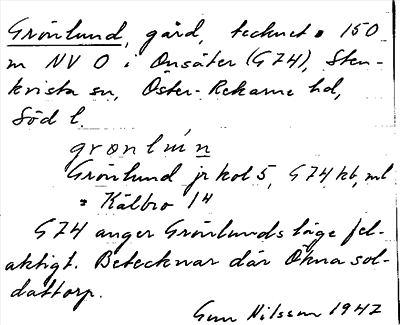 Grönlund, gård, tecknet • 150
m NV O i Onsäter (G74), Sten-
kvista sn, Öster-Rekarne hd,
Söd l.
grönlun
Grönlund jr kol 5, G74 kb, ml
= Kälbro 14
G74 anger Grönlunds läge fel-
aktigt. Betecknar där Ökna sol-
dattorp.
Gun Nilsson 1947